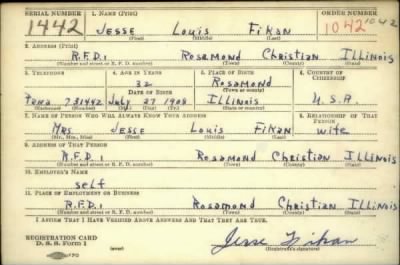 SERIAL NUMBER 1. NAME (Print) ORDER NUMBER
1442 JESSE Louis Fikan 1042 1042
(First) (Middle) (Last)
2. ADDRESS (Print)
R.F.D. 1 Rosamond Christian Illinois
(Number and street or R. F. D. number) (Town) (County) (State)
3. TELEPHONE 4. AGE IN YEARS 5. PLACE OF BIRTH 6. COUNTRY OF CITIZENSHIP
32 Rosamond
DATE OF BIRTH (Town or county)
Pana 731442 July 27 1908 Illinois U.S.A.
(Exchange) (Number) (Mo.) (Day) (Yr.) (State or country)
7. NAME OF PERSON WHO WILL ALWAYS KNOW YOUR ADDRESS 8. RELATIONSHIP OF THAT PERSON
Mrs. Jesse Louis Fikan wife
(Mr., Mrs., Miss) (First) (Middle) (Last)
9. ADDRESS OF THAT PERSON
R.F.D. 1 Rosamond Christian Illinois
(Number and street or R. F. D. number) (Town) (County) (State)
10. EMPLOYER'S NAME
self
11. PLACE OF EMPLOYMENT OR BUSINESS
R.F.D. 1 Rosamond Christian Illinois
(Number and street or R. F. D. number) (Town) (County) (State)
I AFFIRM THAT I HAVE VERIFIED ABOVE ANSWERS AND THAT THEY ARE TRUE.
REGISTRATION CARD
D. S. S. Form 1 (over) Jesse Fikan
(Registrant's signature)